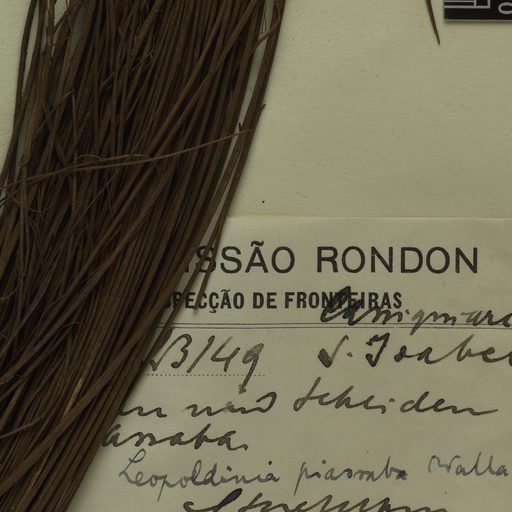 ISSÃO RONDON
PECÇÃO DE FRONTEIRAS
3/49 S. Isabel
und Scheiden
assaba.
Leopoldinia piassaba Walla